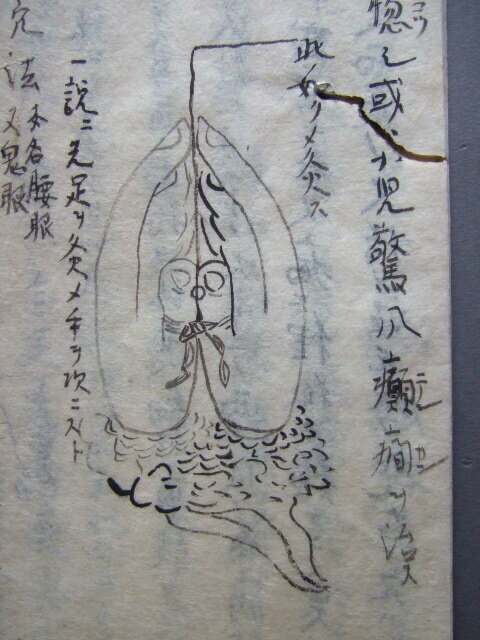 惚シ或ハ小児驚風癲癇ヲ治ス
此如クメ灸ス
一説ニ先足ヲ灸メ手ヲ次ニスト
穴法 本名腰眼
又鬼眼